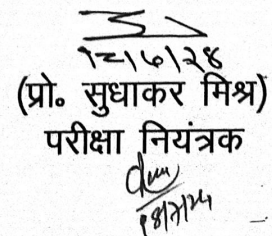 १८/७/२४
(प्रो० सुधाकर मिश्र)
परीक्षा नियंत्रक
18/7/24